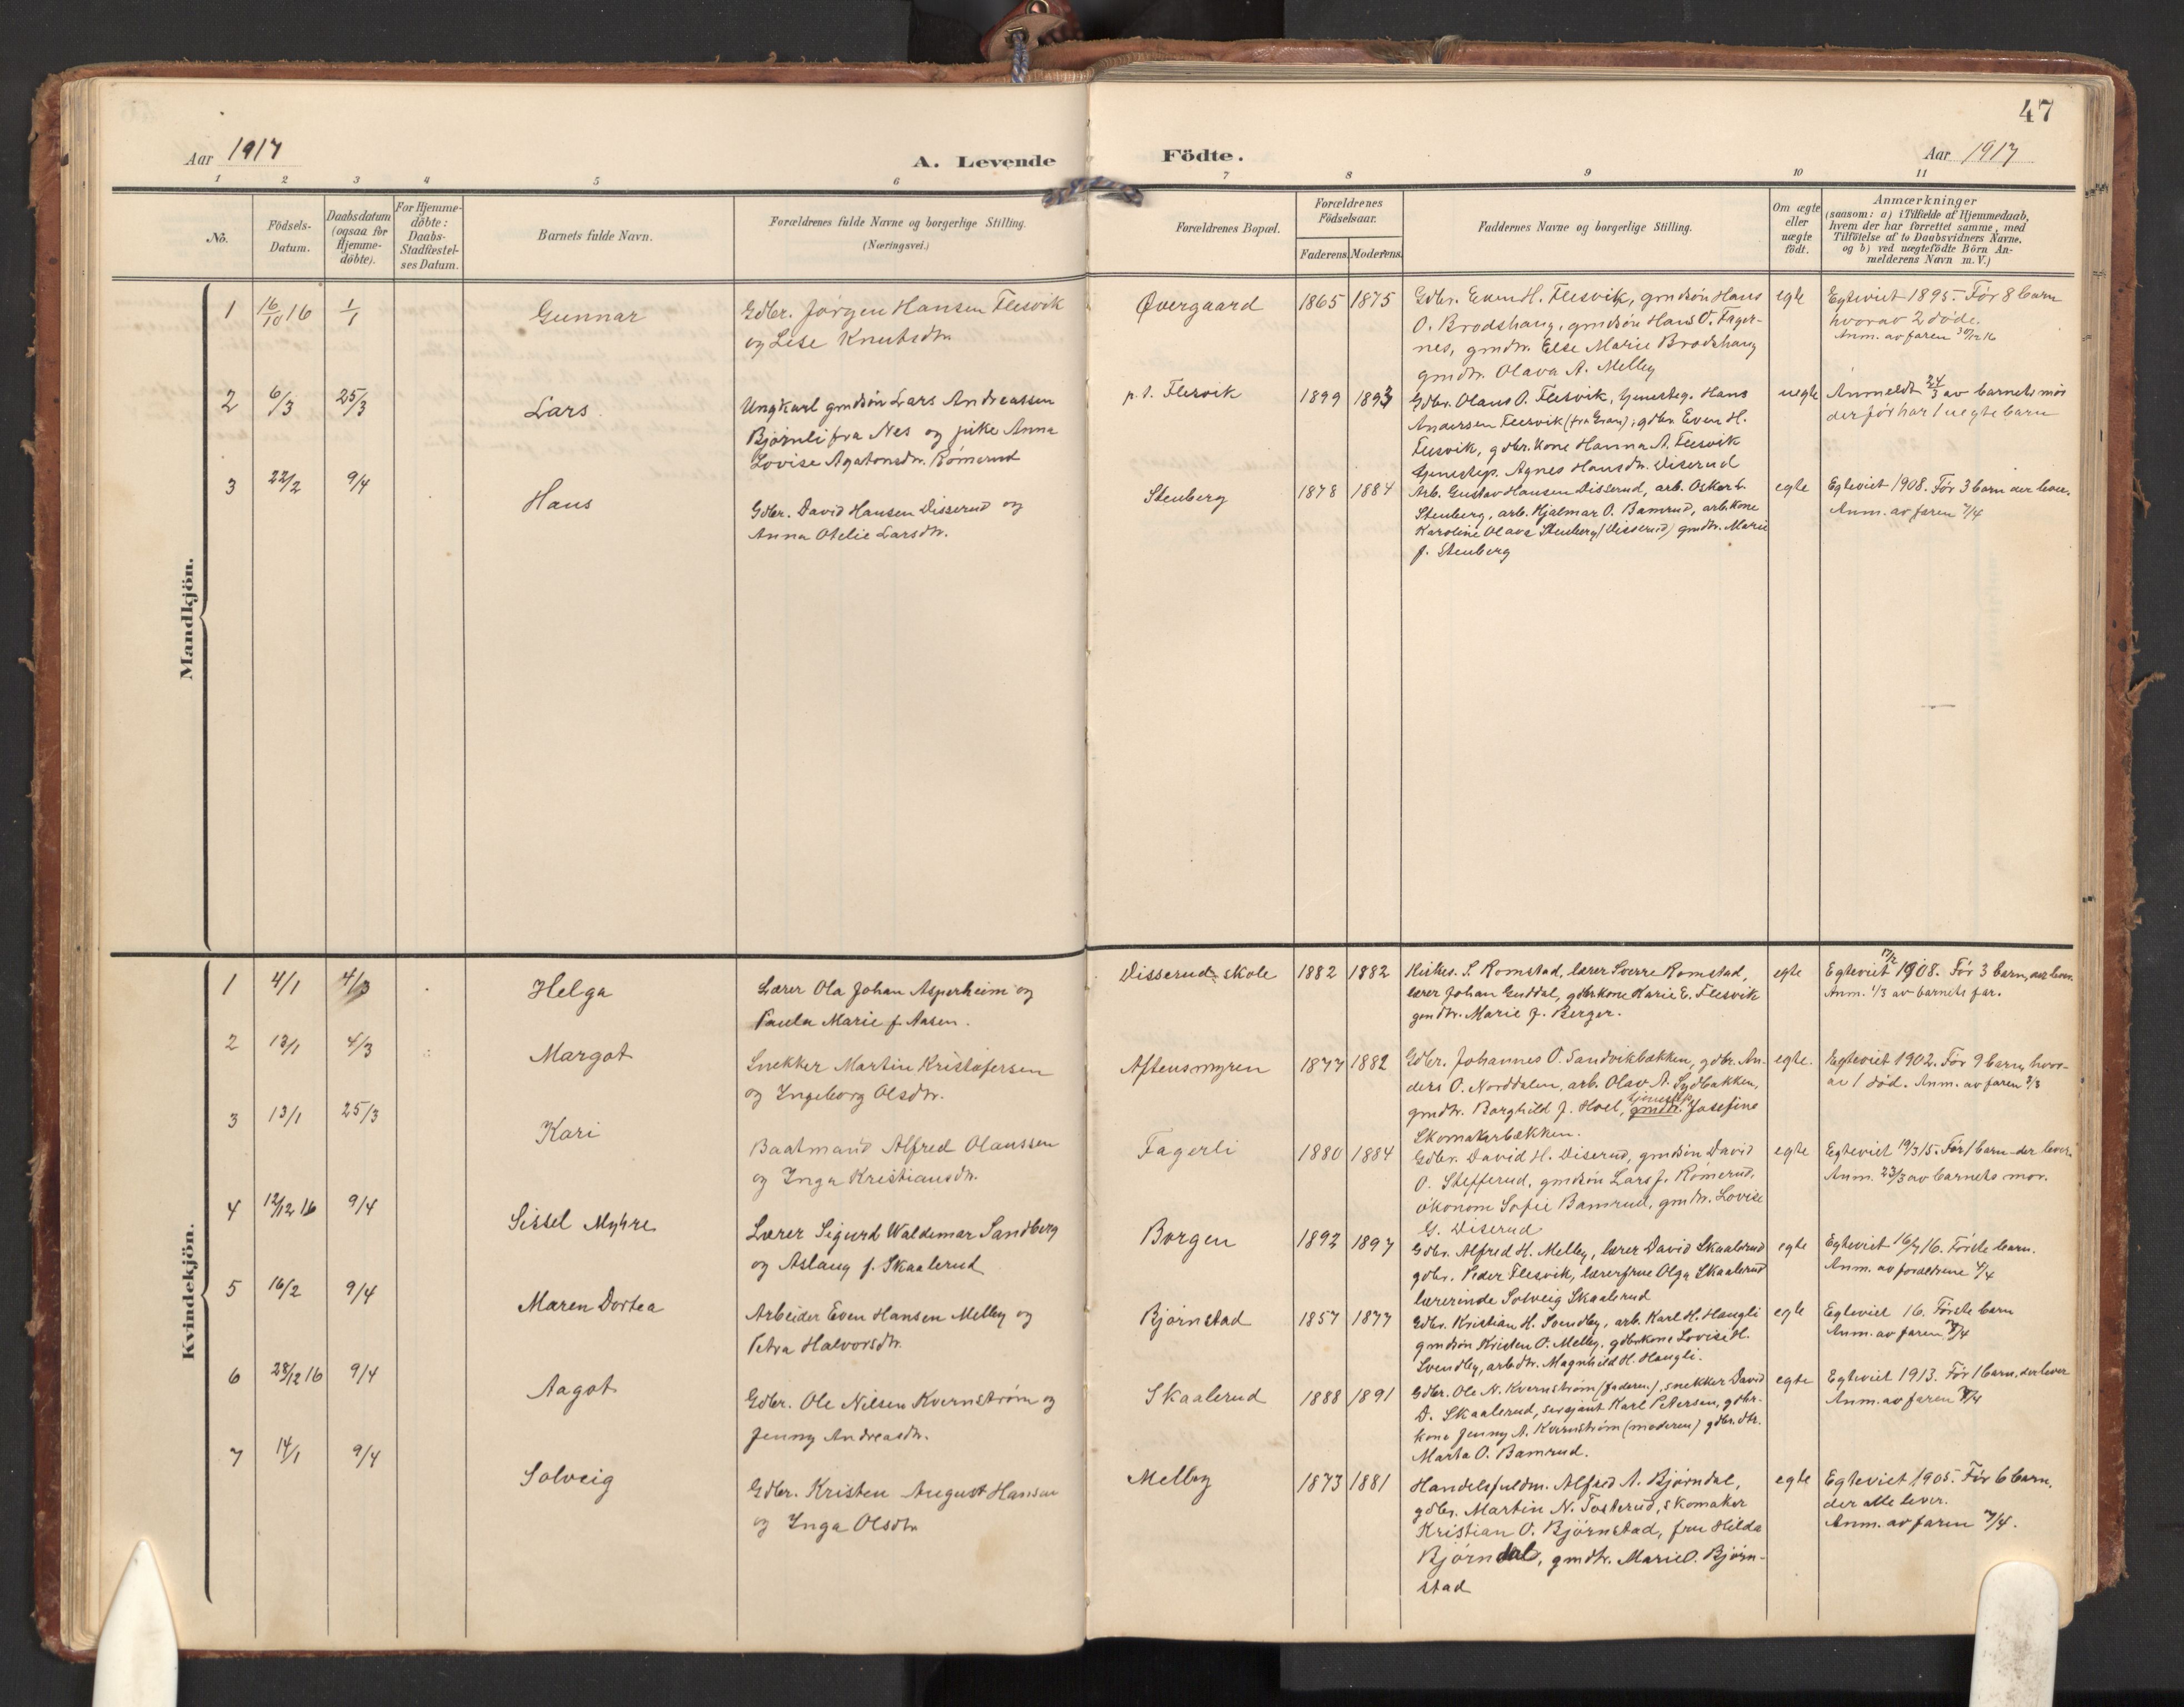 47
Aar 1917
A. Levende Födte.
Aar 1917
1 2 3 4 5 6 7 8 9 10 11
No.
Födsels-
Datum.
Daabsdatum
(ogsaa for
Hjemme-
döbte).
For Hjemme-
döbte:
Daabs-
Stadfæstel-
ses Datum.
Barnets fulde Navn.
Forældrenes fulde Navne og borgerlige Stilling.
(Næringsvei.)
Forældrenes Bopæl.
Forældrenes
Födselsaar.
Faderens. Moderens.
Faddernes Navne og borgerlige Stilling.
Om ægte
eller
uægte
födt.
Anmærkninger
(saasom: a) i Tilfælde af Hjemmedaab,
hvem der har forrettet samme, med
Tilföielse af to Daabsvidners Navne,
og b) ved uægtefödte Börn An-
melderens Navn m. V.)
Mandkjön.
1 16/10 16 1/1 Gunnar
Gdbr. Jørgen Hansen Flesvik
og Lise Knutsdtr.
Øvergaard 1865 1875
Gdbr. Even H. Flesvik, gmdsön Hans
O. Brodshaug, gmdsön Hans O. Fager-
nes, gmdtr. Else Marie Brodshaug
gmdtr. Olava A. Melby
egte
Egteviet 1895. Før 8 barn
hvorav 2 døde.
Anm. av faren 30/12 16
2 6/3 25/3 Lars
Ungkarl gmdsön Lars Andreassen
Bjørnli fra Nes og pike Anna
Lovise Agatonsdtr. Rømerud
p.t. Flesvik 1899 1893
Gdbr. Olaus O. Flesvik, tjenesteg. Hans
Andersen Flesvik (fra Gran), gdbr. Even H.
Flesvik, gdbr. kone Hanna A. Flesvik
tjenestep. Agnes Hansdtr. Diserud
uegte
Anmeldt 24/3 av barnets mor
der før har 1 uegte barn
3 22/2 9/4 Hans
Gdbr. David Hansen Disserud og
Anna Otelie Larsdtr.
Stenberg 1878 1884
Arb. Gustav Hansen Disserud, arb. Oskar L.
Stenberg, arb. Hjalmar O. Bamrud, arb. kone
Karoline Olava Stenberg (Disserud) gmdtr. Marie
J. Stenberg
egte
Egteviet 1908. Før 3 barn der lever.
Anm. av faren 7/4
Kvindekjön.
1 4/1 4/3 Helga
Lærer Ola Johan Asperheim og
Paula Marie f. Aasen.
Disserud skole 1882 1882
Kirkes. S. Romstad, lærer Sverre Romstad,
lærer Johan Guddal, gdbr kone Karie E. Flesvik
gmdtr. Marie J. Berger.
egte
Egteviet 17/12 1908. Før 3 barn, der lever.
Anm. 1/3 av barnets far.
2 13/1 4/3 Margot
Snekker Martin Kristofersen
og Ingeborg Olsdtr.
Aftensmyren 1877 1882
Gdbr. Johannes O. Sandvikbækken, gdbr. An-
ders O. Norddalen, arb. Olav A. Sydbakken,
gmdtr. Borghild J. Hoel, tjenestep. gmdtr. Josefine
Skomakerbækken.
egte.
Egteviet 1902. Før 9 barn, hvor-
av 1 død. Anm. av faren 2/3
3 13/1 25/3 Kari
Baatmand Alfred Olaussen
og Inga Kristiansdtr.
Fagerli 1880 1884
Gdbr. David H. Diserud, gmdsön David
O. Stefferud, gmdsön Lars J. Rømerud,
økonom Sofie Bamrud, gmdtr. Lovise
G. Diserud
egte
Egteviet 19/3 15. Før 1 barn der lever.
Anm. 23/3 av barnets mor.
4 12/12 16 9/4 Sissel Myhre
Lærer Sigurd Waldemar Sandberg
og Aslaug f. Skaalerud
Borgen 1892 1897
Gdbr. Alfred H. Melby, lærer David Skaalerud
gdbr. Peder Flesvik, lærerfrue Olga Skaalerud
lærerinde Solveig Skaalerud
egte
Egteviet 16/7 16. Første barn.
Anm. av forældrene 4/4
5 16/2 9/4 Maren Dortea
Arbeider Even Hansen Melby og
Petra Halvorsdtr.
Bjørnstad 1857 1877
Gdbr. Kristian H. Svendby, arb. Karl H. Haugli
gmdsön Kristen O. Melby, gdbr kone Lovise H.
Svendby, arb. dtr. Magnhild H. Haugli.
egte
Egteviet 16. Første barn
Anm. av faren 7/4
6 28/12 16 9/4 Aagot
Gdbr. Ole Nilsen Kvernstrøm og
Jenny Andreasdtr.
Skaalerud 1888 1891
Gdbr. Ole N. Kvernstrøm (faderen), snekker David
D. Skaalerud, sersjant Karl Petersen, gdbr.
kone Jenny A. Kvernstrøm (moderen) gdbr. dtr.
Marta O. Bamrud.
egte
Egteviet 1913. Før 1 barn, der lever
Anm. av faren 7/4
7 14/1 9/4 Solveig
Gdbr. Kristen August Hansen
og Inga Olsdtr.
Melby 1873 1881
Handelsfuldm. Alfred A. Bjørndal,
gdbr. Martin N. Tosterud, skomaker
Kristian O. Bjørnstad, frue Hilda
Bjørndal, gmdtr. Marie O. Bjørn-
stad
egte
Egteviet 1905. Før 6 barn,
der alle lever.
Anm. av faren 7/4.